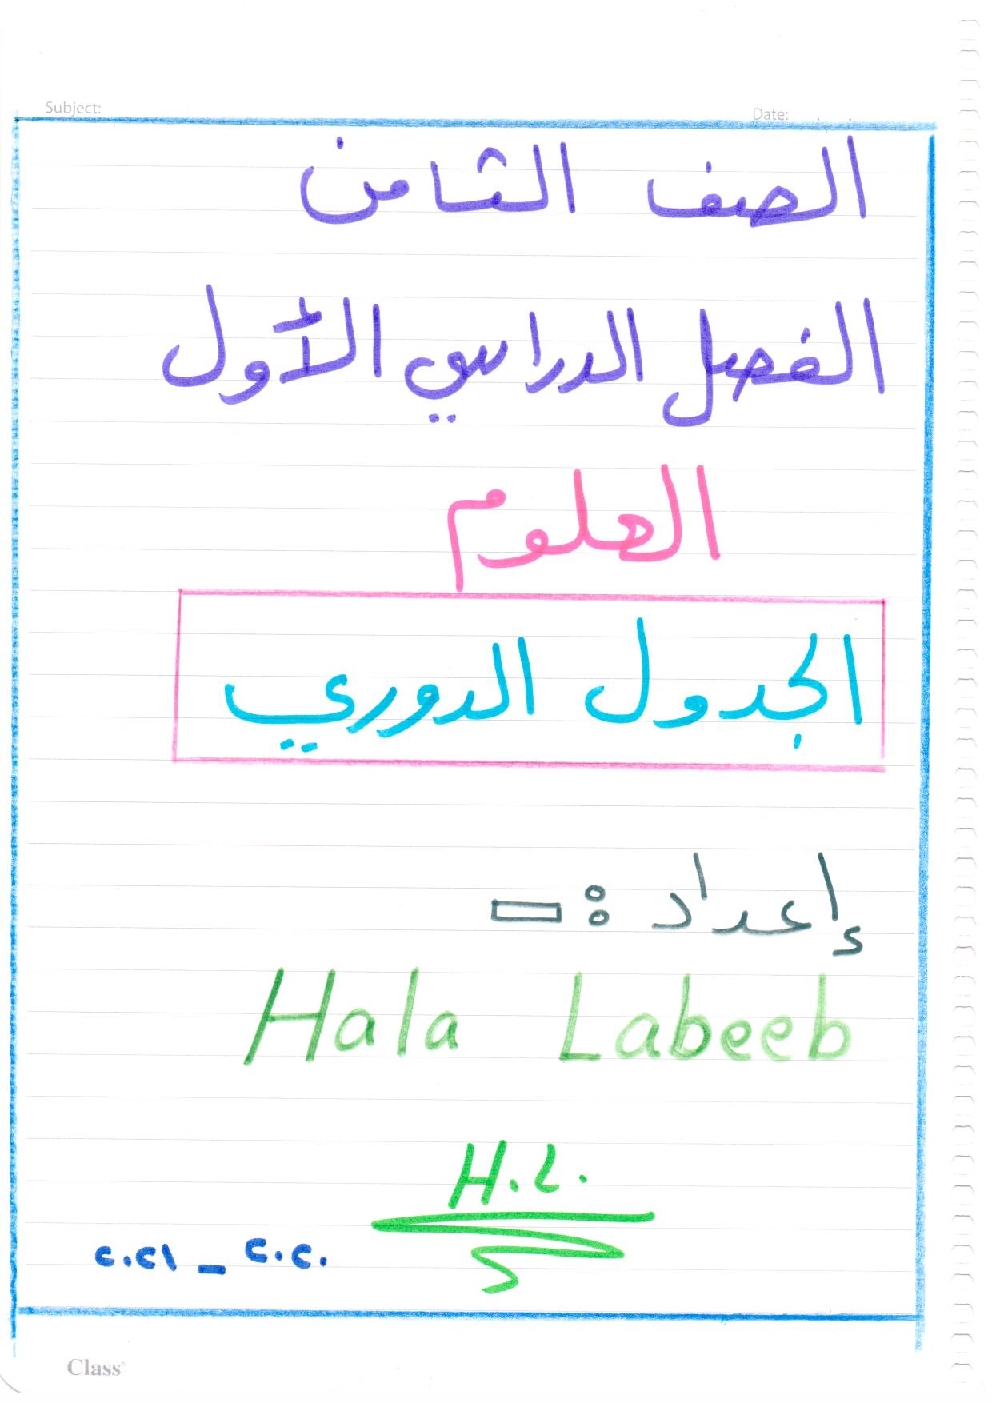 Subject:
Date:
الصف الثامن
الفصل الدراسي الأول
العلوم
الجدول الدوري
إعداد :-
Hala Labeeb
H.L.
٢٠٢٠ _ ٢٠٢١
Class